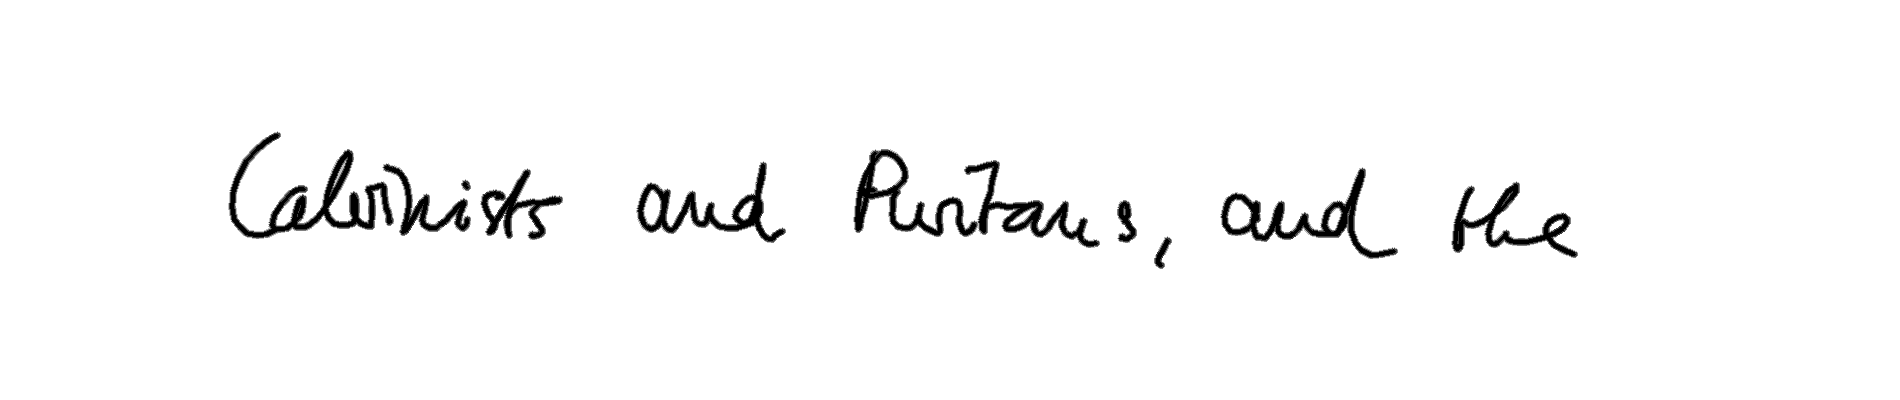 Calvinists and Puritans, and the